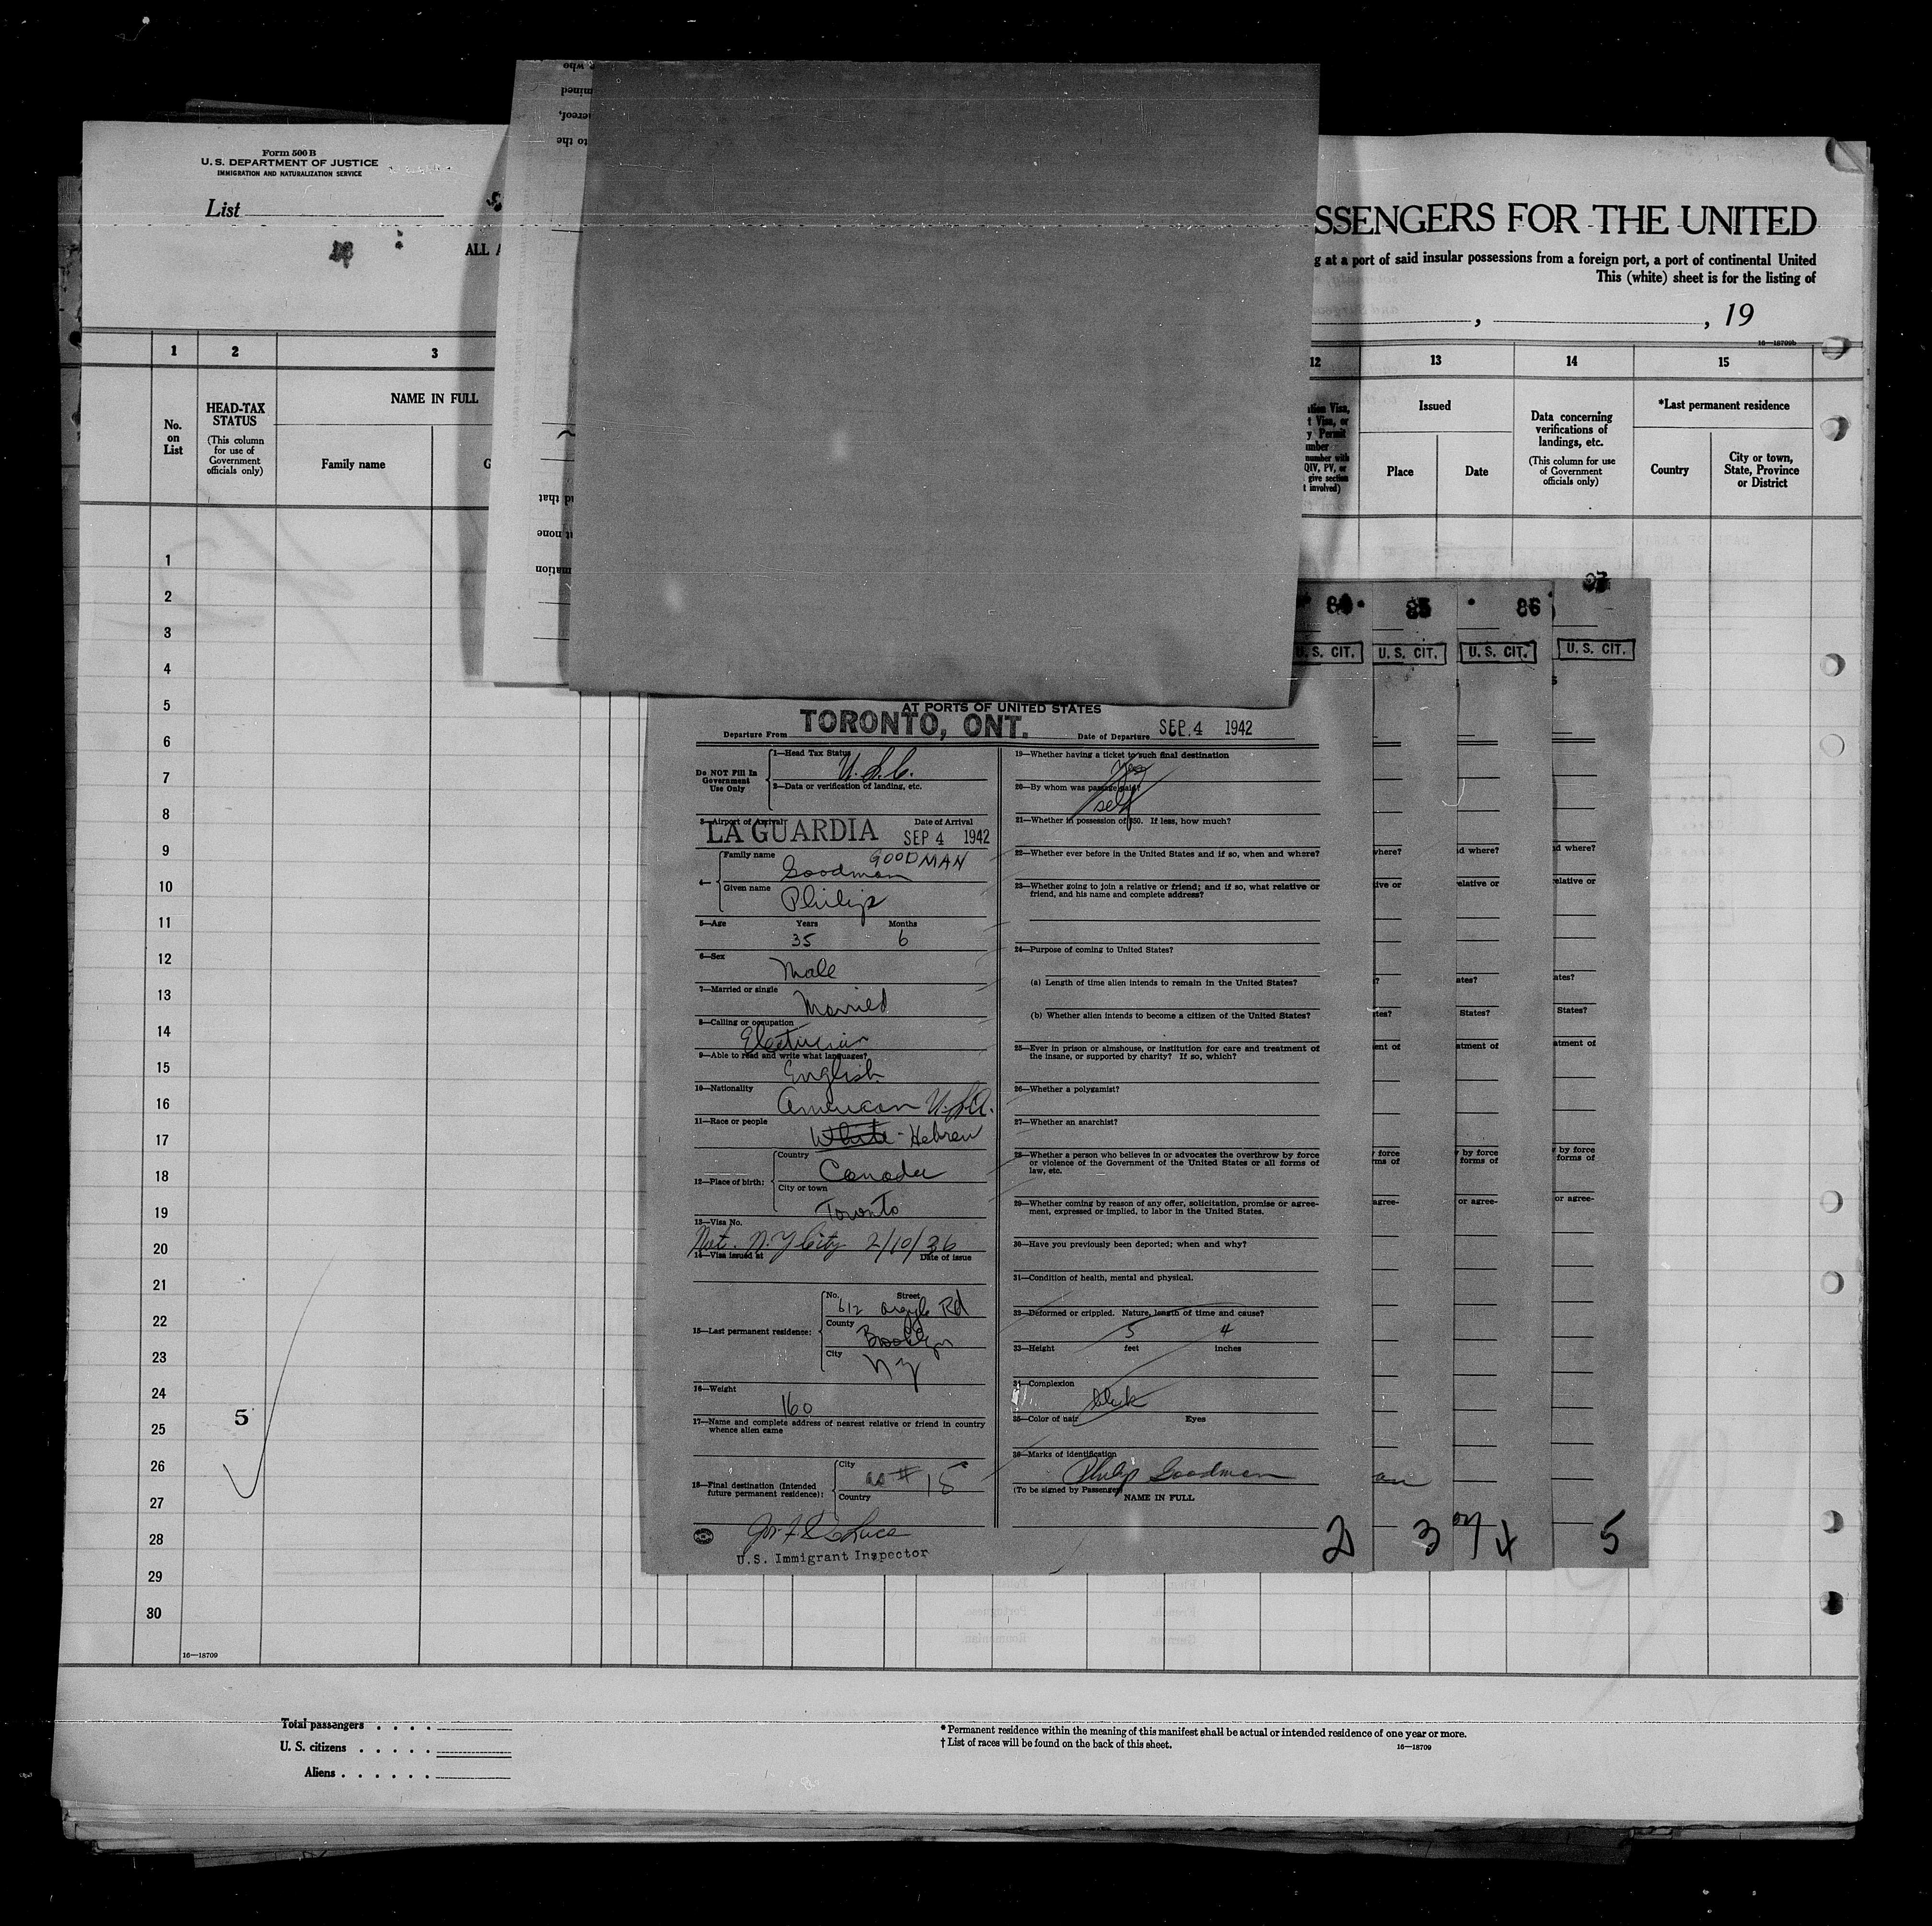 Form 500 B
U. S. DEPARTMENT OF JUSTICE
IMMIGRATION AND NATURALIZATION SERVICE
List
ALL A
SSENGERS FOR THE UNITED
g at a port of said insular possessions from a foreign port, a port of continental United
This (white) sheet is for the listing of
, , 19
16—18709b
1 2 3 12 13 14 15
No. on List
HEAD-TAX STATUS
(This column for use of Government officials only)
NAME IN FULL
Family name G
Issued
Place Date
Data concerning verifications of landings, etc.
(This column for use of Government officials only)
*Last permanent residence
Country
City or town, State, Province or District
1
2
3
4
5
6
7
8
9
10
11
12
13
14
15
16
17
18
19
20
21
22
23
24
25
26
27
28
29
30
5
16—18709
85 86
U. S. CIT. U. S. CIT. U. S. CIT. U. S. CIT.
AT PORTS OF UNITED STATES
Departure From TORONTO, ONT. Date of Departure SEP. 4 1942
Do NOT Fill In Government Use Only
1—Head Tax Status U.S.C.
2—Data or verification of landing, etc.
3—Airport of Arrival Date of Arrival
LA GUARDIA SEP 4 1942
4— Family name Goodman GOODMAN
Given name Philip
5—Age Years 35 Months 6
6—Sex Male
7—Married or single Married
8—Calling or occupation Electrician
9—Able to read and write what languages? English
10—Nationality American U.S.A.
11—Race or people White - Hebrew
12—Place of birth: Country Canada
City or town Toronto
13—Visa No. Nat. N.Y City 2/10/36
14—Visa issued at Date of issue
15—Last permanent residence: No. 612 Street Argyle Rd
County Brooklyn
City N Y
16—Weight 160
17—Name and complete address of nearest relative or friend in country
whence alien came
18—Final destination (Intended
future permanent residence): City # 15
Country
U.S. Immigrant Inspector
19—Whether having a ticket to such final destination
Yes
20—By whom was passage paid?
self
21—Whether in possession of $50. If less, how much?
22—Whether ever before in the United States and if so, when and where?
23—Whether going to join a relative or friend; and if so, what relative or
friend, and his name and complete address?
24—Purpose of coming to United States?
(a) Length of time alien intends to remain in the United States?
(b) Whether alien intends to become a citizen of the United States?
25—Ever in prison or almshouse, or institution for care and treatment of
the insane, or supported by charity? If so, which?
26—Whether a polygamist?
27—Whether an anarchist?
28—Whether a person who believes in or advocates the overthrow by force
or violence of the Government of the United States or all forms of
law, etc.
29—Whether coming by reason of any offer, solicitation, promise or agree-
ment, expressed or implied, to labor in the United States.
30—Have you previously been deported; when and why?
31—Condition of health, mental and physical.
32—Deformed or crippled. Nature, length of time and cause?
33—Height 5 feet 4 inches
34—Complexion
35—Color of hair blck Eyes
36—Marks of identification
Philip Goodman
(To be signed by Passenger)
NAME IN FULL
2 3 4 5
Total passengers
U. S. citizens
Aliens
* Permanent residence within the meaning of this manifest shall be actual or intended residence of one year or more.
† List of races will be found on the back of this sheet.
16—18709